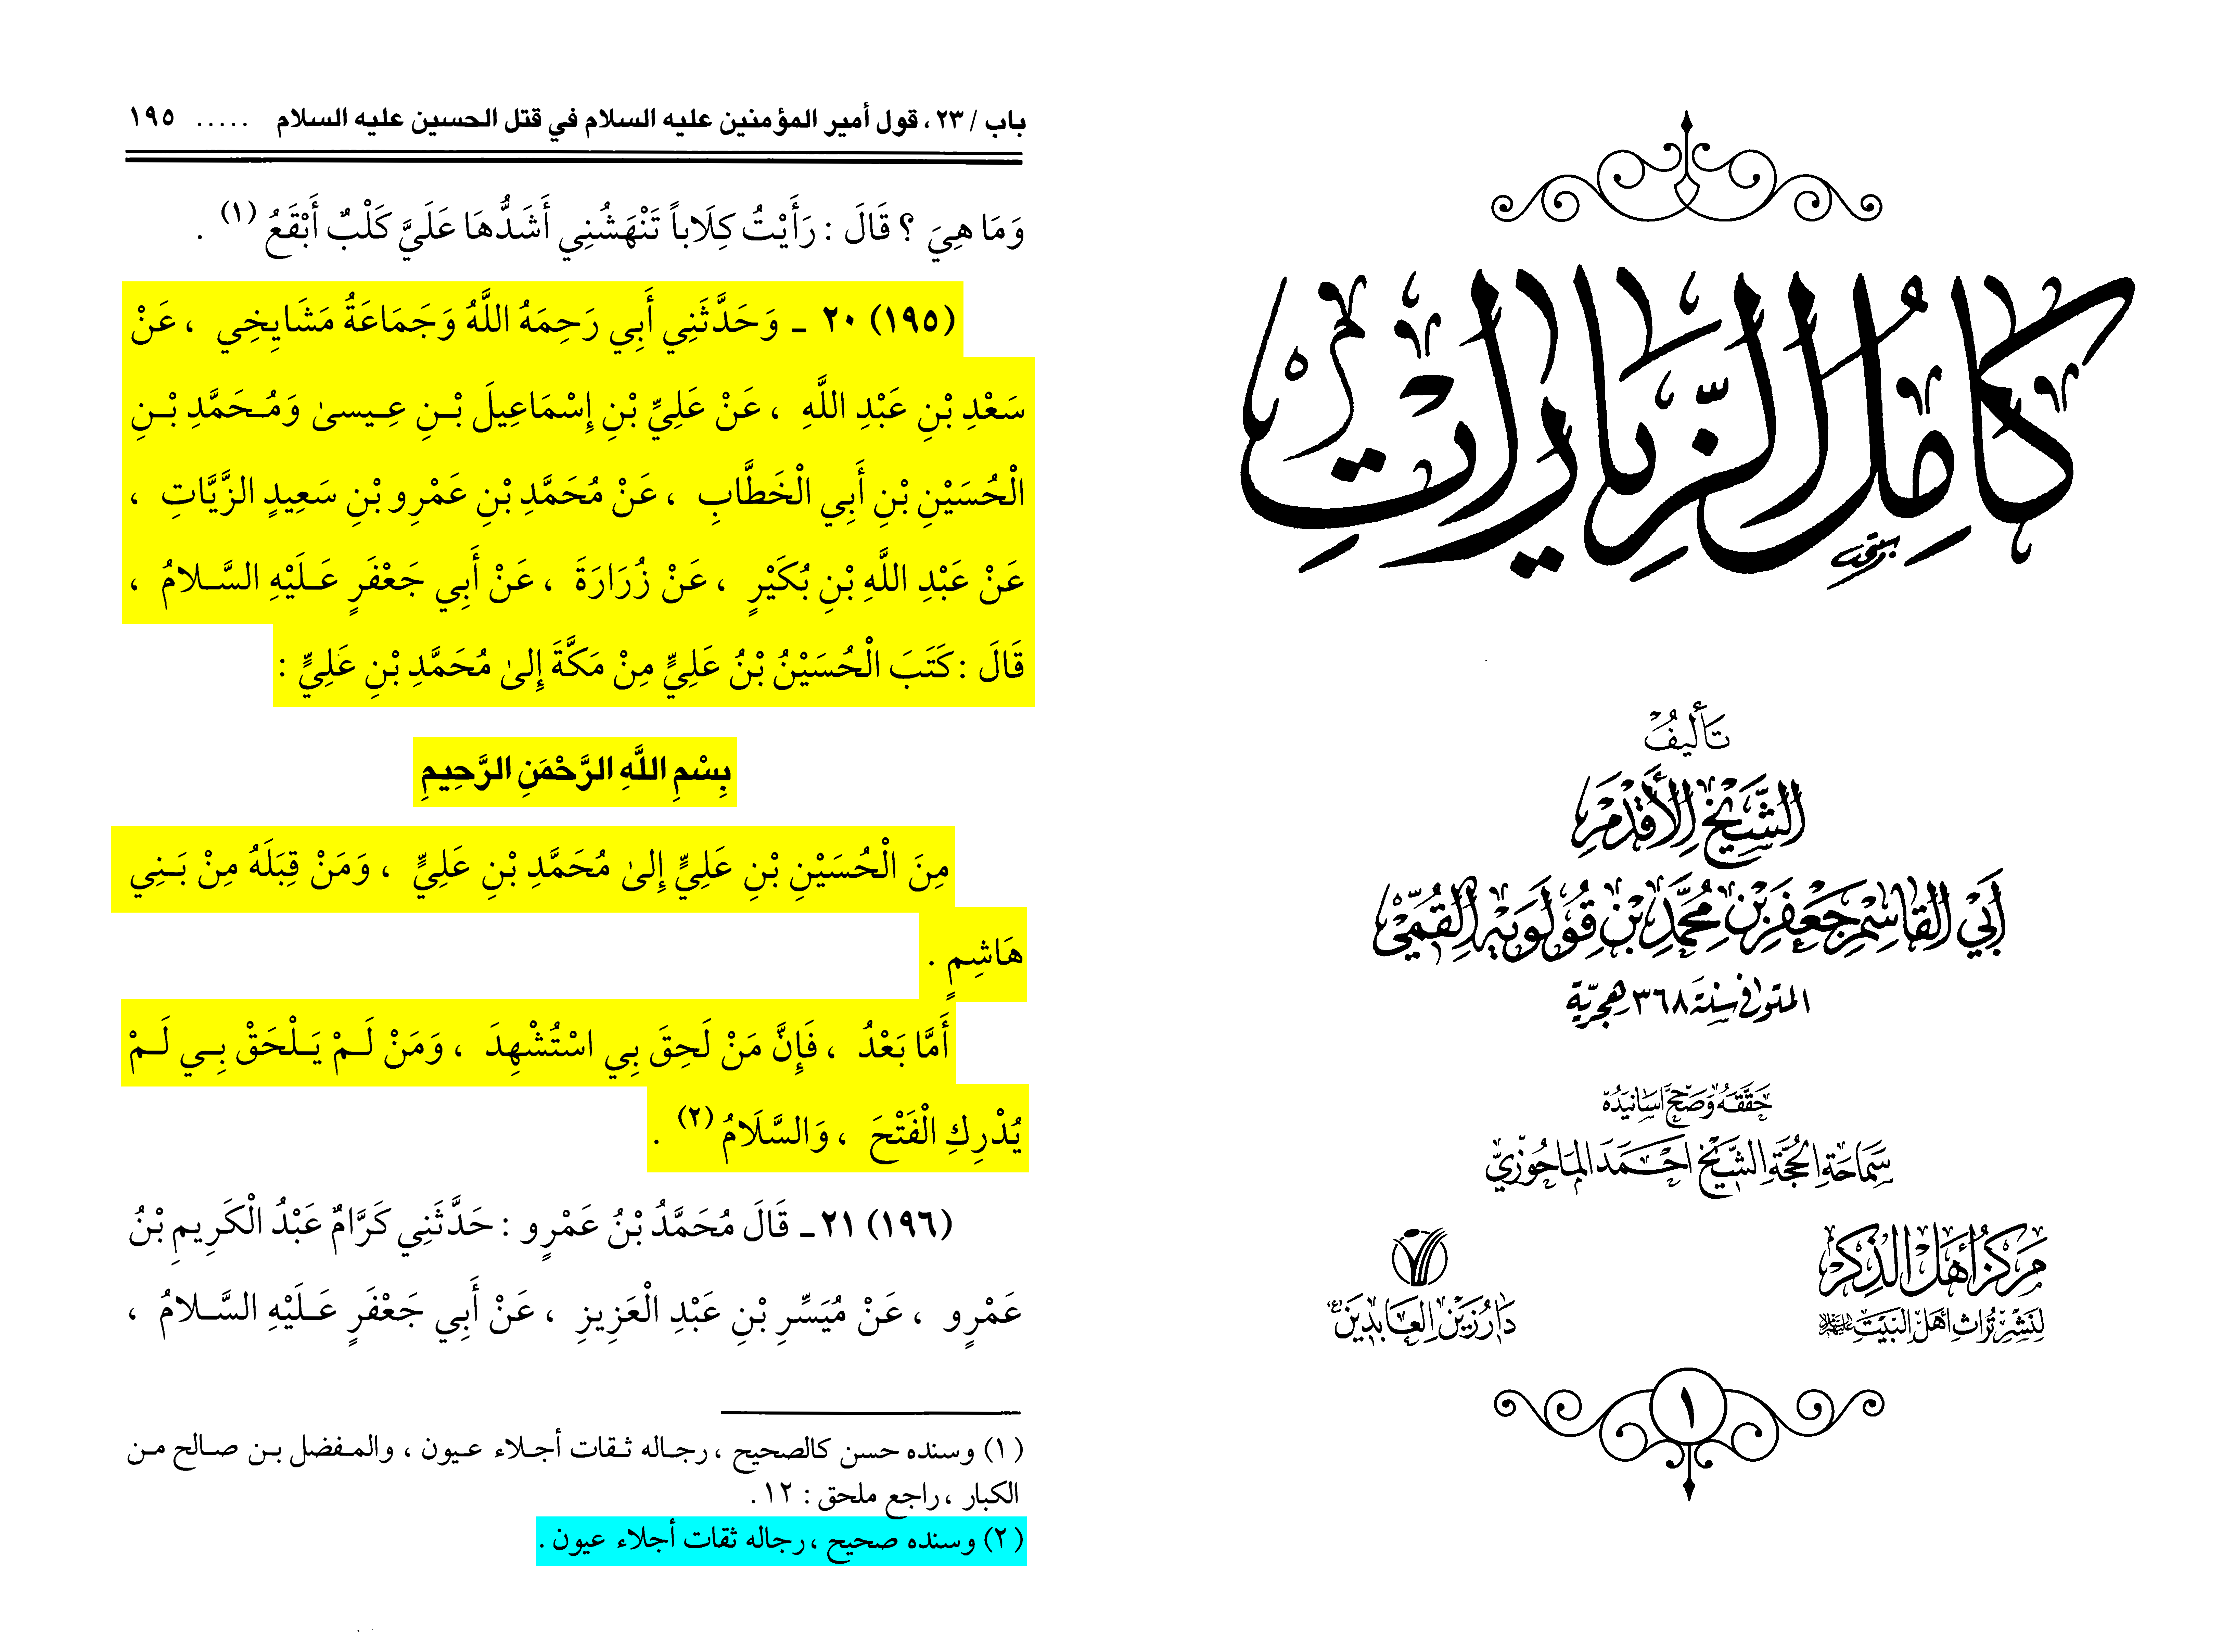 كامل الزيارات
تأليف
الشيخ الأقدم
أبي القاسم جعفر بن محمد بن قولويه القمي
المتوفى سنة ٣٦٨ هجرية
حققه وصحح أسانيده
سماحة الحجة الشيخ أحمد الماحوزي
مركز أهل الذكر
لنشر تراث أهل البيت
دار زين العابدين
١
باب / ٢٣ ، قول أمير المؤمنين عليه السلام في قتل الحسين عليه السلام ..... ١٩٥
وَمَا هِيَ ؟ قَالَ : رَأَيْتُ كِلَاباً تَنْهَشُنِي أَشَدُّهَا عَلَيَّ كَلْبٌ أَبْقَعُ (١) .
(١٩٥) ٢٠ ـ وَحَدَّثَنِي أَبِي رَحِمَهُ اللَّهُ وَجَمَاعَةُ مَشَايِخِي ، عَنْ
سَعْدِ بْنِ عَبْدِ اللَّهِ ، عَنْ عَلِيِّ بْنِ إِسْمَاعِيلَ بْـنِ عِـيسىٰ وَمُـحَمَّدِ بْـنِ
الْحُسَيْنِ بْنِ أَبِي الْخَطَّابِ ، عَنْ مُحَمَّدِ بْنِ عَمْرِو بْنِ سَعِيدٍ الزَّيَّاتِ ،
عَنْ عَبْدِ اللَّهِ بْنِ بُكَيْرٍ ، عَنْ زُرَارَةَ ، عَنْ أَبِي جَعْفَرٍ عَـلَيْهِ السَّـلامُ ،
قَالَ : كَتَبَ الْحُسَيْنُ بْنُ عَلِيٍّ مِنْ مَكَّةَ إِلىٰ مُحَمَّدِ بْنِ عَلِيٍّ :
بِسْمِ اللَّهِ الرَّحْمَنِ الرَّحِيمِ
مِنَ الْحُسَيْنِ بْنِ عَلِيٍّ إِلىٰ مُحَمَّدِ بْنِ عَلِيٍّ ، وَمَنْ قِبَلَهُ مِنْ بَـنِي
هَاشِمٍ .
أَمَّا بَعْدُ ، فَإِنَّ مَنْ لَحِقَ بِي اسْتُشْهِدَ ، وَمَنْ لَـمْ يَـلْحَقْ بِـي لَـمْ
يُدْرِكِ الْفَتْحَ ، وَالسَّلَامُ (٢) .
(١٩٦) ٢١ ـ قَالَ مُحَمَّدُ بْنُ عَمْرٍو : حَدَّثَنِي كَرَّامٌ عَبْدُ الْكَرِيمِ بْنُ
عَمْرٍو ، عَنْ مُيَسِّرِ بْنِ عَبْدِ الْعَزِيزِ ، عَنْ أَبِي جَعْفَرٍ عَـلَيْهِ السَّـلامُ ،
(١) وسنده حسن كالصحيح ، رجـاله ثـقات أجـلاء عـيون ، والمـفضل بـن صـالح مـن
الكبار ، راجع ملحق : ١٢ .
(٢) وسنده صحيح ، رجاله ثقات أجلاء عيون .